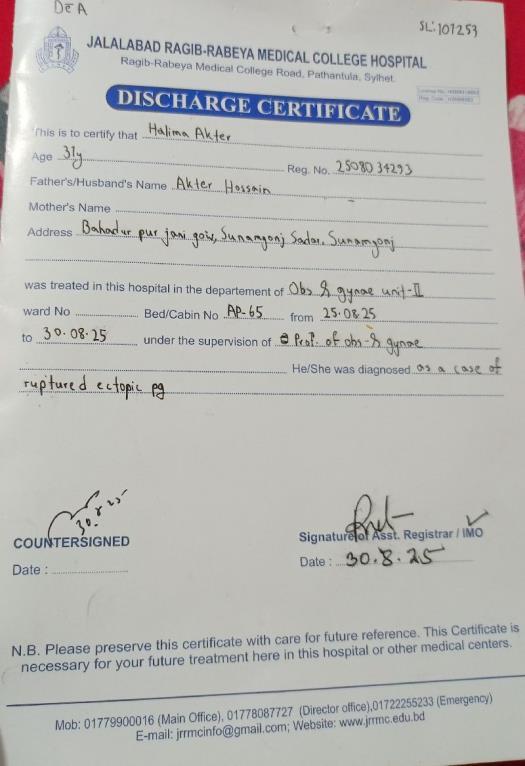 DEA
SL: 107253
JALALABAD RAGIB-RABEYA MEDICAL COLLEGE HOSPITAL
Ragib-Rabeya Medical College Road, Pathantula, Sylhet.
DISCHARGE CERTIFICATE
This is to certify that Halima Akter
Age 31y Reg. No. 2508034293
Father's/Husband's Name Akter Hossain
Mother's Name
Address Bahadur pur jani gow, Sunamgonj Sadar, Sunamgonj
was treated in this hospital in the departement of Obs & gynae unit-II
ward No Bed/Cabin No AP-65 from 25.08.25
to 30.08.25 under the supervision of Prof. of obs & gynae
He/She was diagnosed as a case of
ruptured ectopic pg
30.8.25
COUNTERSIGNED
Signature of Asst. Registrar / IMO
Date :
Date : 30.8.25
N.B. Please preserve this certificate with care for future reference. This Certificate is
necessary for your future treatment here in this hospital or other medical centers.
Mob: 01779900016 (Main Office), 01778087727 (Director office),01722255233 (Emergency)
E-mail: jrrmcinfo@gmail.com; Website: www.jrrmc.edu.bd